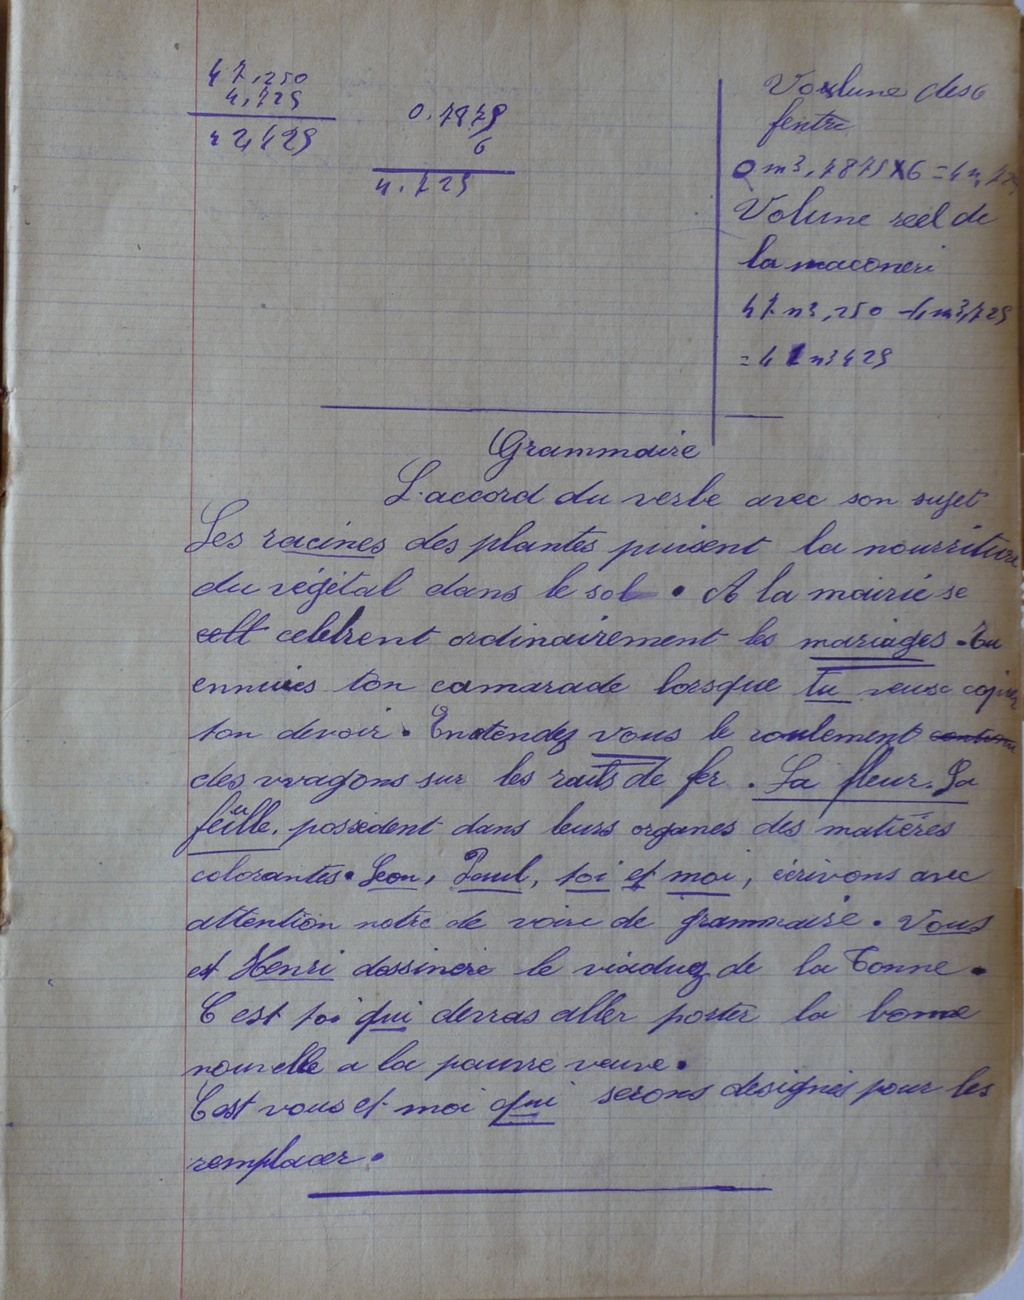 47,250
4,725
42,425
0.7875
6
4.725
Volume des 6
fentre
0 m3,7875 X 6 = 4m,725
Volume reel de
la maconeri
47 m3,250 - 4m3,725
= 42 m3 425
Grammaire
L'accord du verbe avec son sujet
Les racines des plantes puisent la nourriture
du végétal dans le sol. A la mairie se
celebrent ordinairement les mariages. Tu
ennuies ton camarade lorsque tu veux copier
ton devoir. Entendez vous le roulement
des wagons sur les rails de fer. La fleur. La
feuille. possèdent dans leurs organes des matières
colorantes. Leon, Paul, toi et moi, écrivons avec
attention notre de voire de grammaire. Vous
et Henri dessinere le viaduc de la Tonne.
C'est toi qui devras aller porter la bonne
nouvelle a la pauvre veuve.
C'est vous et moi qui serons designés pour les
remplacer.